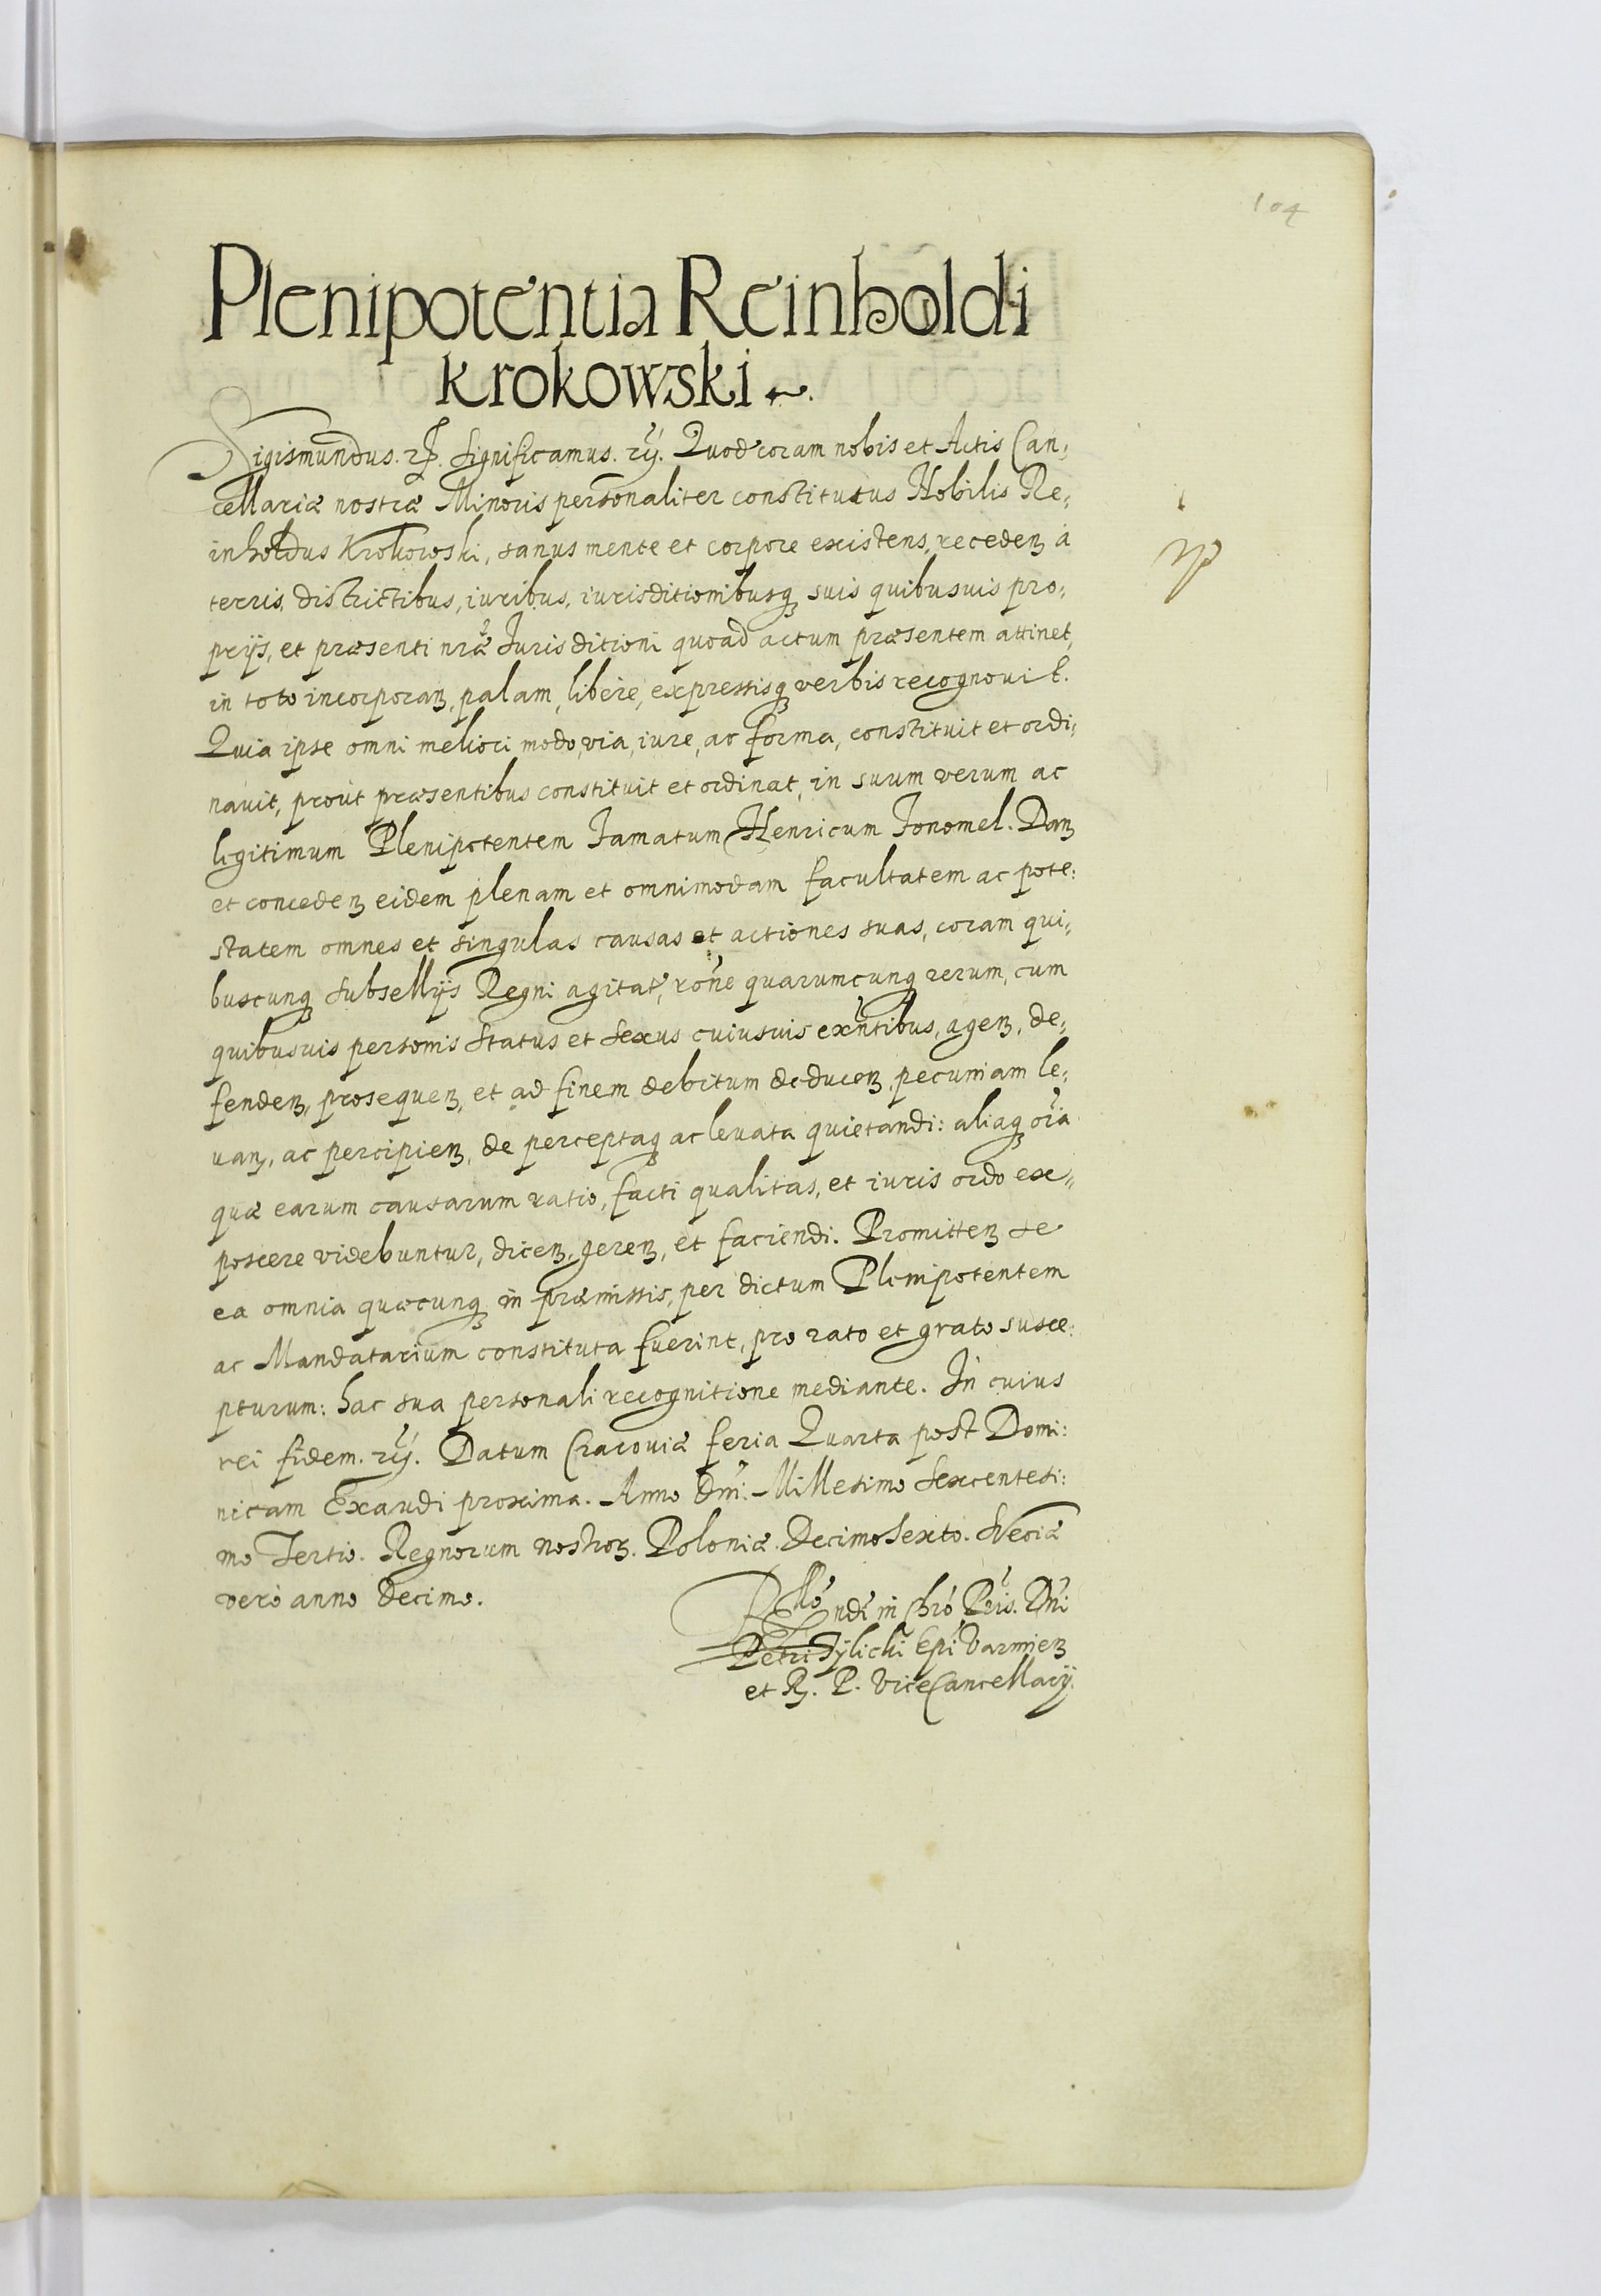 104
Plenipotentia Reinholdi
Krokowski
Sigismundus. Significamus. Quod coram nobis et Actis Can,
cellariæ nostræ Minoris personaliter constitutus Nobilis Re,
inholdus Krokowski, sanus mente et corpore existens, recedenʒ à
terris, districtibus, iuribus, iurisditionibusqʒ suis quibusuis pro,
prijs, et præsenti nræ Iurisditioni quoad actum præsentem attinet,
in toto incorporanʒ, palam, libere, expressisqʒ verbis recognouit.
Quia ipse omni meliori modo, via, iure, ac forma, constituit et ordi,
nauit, prout præsentibus constituit et ordinat, in suum verum ac
ligitimum Plenipotentem Famatum Henricum Fonomel. Danʒ
et concedenʒ eidem plenam et omnimodam facultatem ac pote:
statem omnes et singulas causas et actiones suas, coram qui,
buscunqʒ subsellijs Regni agitat, rone quarumcunqʒ rerum, cum
quibusuis personis status et sexus cuiusuis exntibus, agenʒ, de,
fendenʒ, prosequenʒ, et ad finem debitum deducenʒ, pecuniam le,
uanʒ, ac percipienʒ, de perceptaqʒ ac leuata quietandi: aliaqʒ oia
quæ earum causarum ratio, facti qualitas, et iuris ordo ex,,
poscere videbuntur, dicenʒ, gerenʒ, et faciendi. Promittenʒ se
ea omnia quæcunqʒ in præmissis, per dictum Plenipotentem
ac Mandatarium constituta fuerint, pro rato et grato susce:
pturum: hac sua personali recognitione mediante. In cuius
rei fidem. Datum Cracouiæ feria Quarta post Domi:
nicam Exaudi proxima. Anno Dni: Millesimo Sexcentesi:
mo Tertio. Regnorum nostrorʒ. Poloniæ. DecimoSexto. Sveciæ
verò anno Decimo.
Rllo ndi in Chro Pris. Dni
Petri Tylicki Epi Varmienʒ
et R. P. ViceCancellarij.